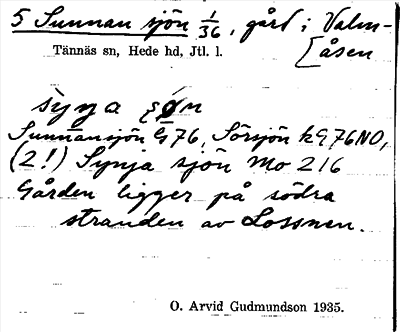 5 Sunnan sjön 1/36, gård i Valm-
[åsen
Tännäs sn, Hede hd, Jtl. l.
syna
Sunnansjön G76, Sörsjön kG76NO,
(2!) Synja sjön Mo 216
Gården ligger på södra
stranden av Lossnen.
O. Arvid Gudmundson 1935.